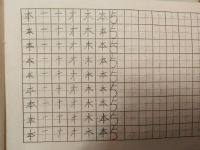 本 一 十 才 木 本 5
本 一 十 才 木 本 5
本 一 十 才 木 本 5
本 一 十 才 木 本 5
本 一 十 才 木 本 5
本 一 十 才 木 本 5
本 一 十 才 木 本 5
本 一 十 才 木 本 5
本 一 十 才 木 本 5